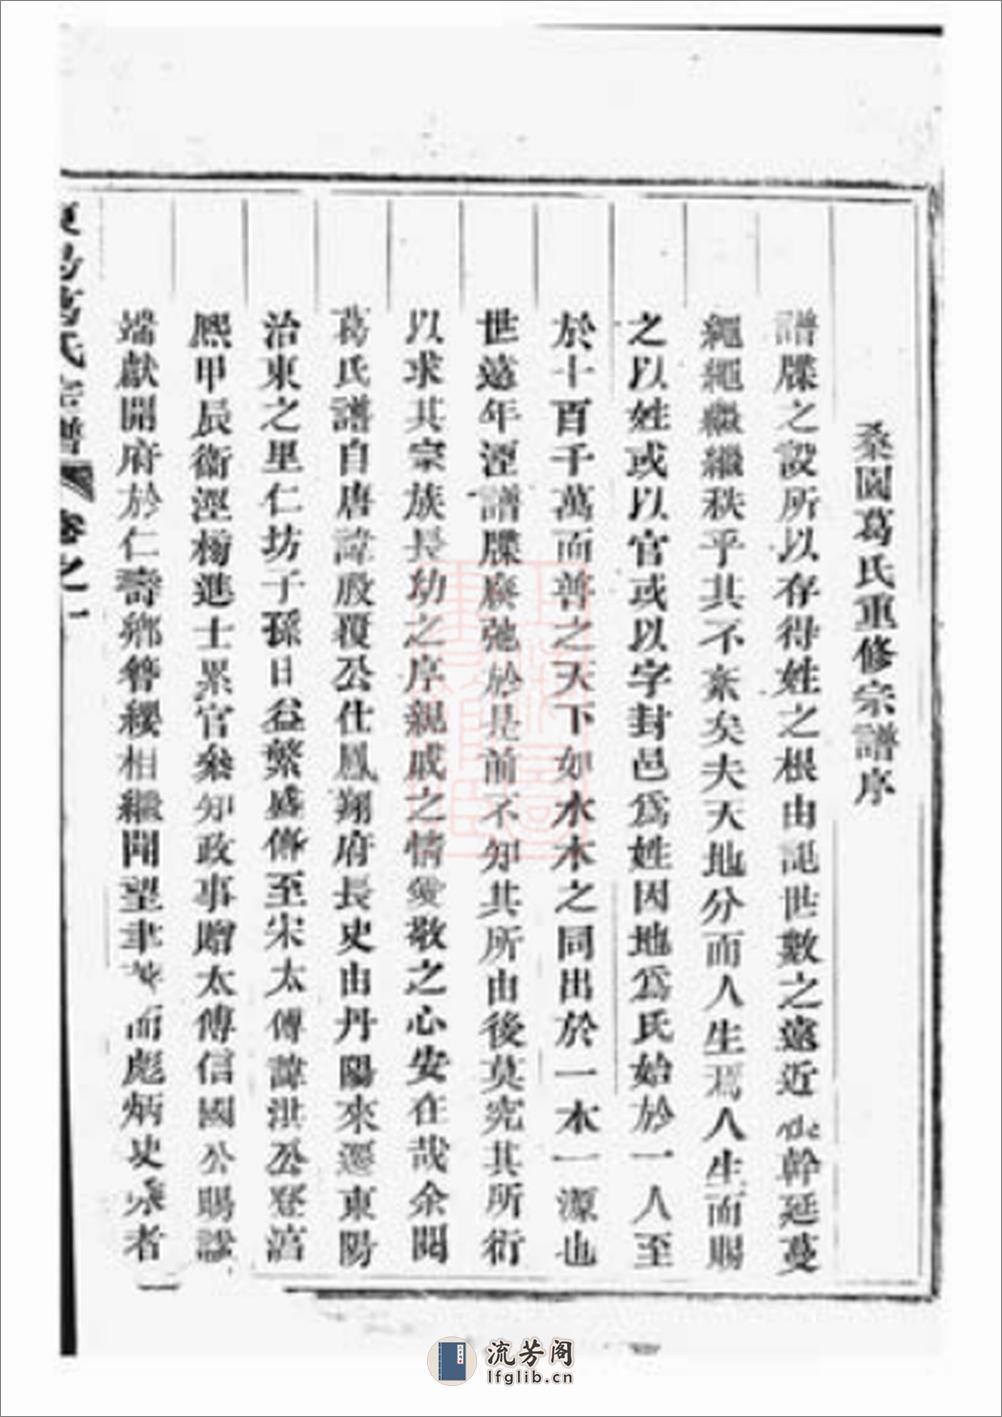 桑園葛氏重修宗譜序
譜牒之設所以存得姓之根由記世數之遠近幹延蔓
繩繩繼繼秩乎其不紊矣夫天地分而人生焉人生而賜
之以姓或以官或以字封邑爲姓因地爲氏始於一人至
於十百千萬而普之天下如水木之同出於一本一源也
世遠年湮譜牒廢弛於是前不知其所由後莫究其所衍
以求其宗族長幼之序親戚之情愛敬之心安在哉余閱
葛氏譜自唐諱殷覆公仕鳳翔府長史由丹陽來遷東陽
治東之里仁坊子孫日益繁盛傳至宋太傅諱洪公登淳
熙甲辰衞涇榜進士累官叅知政事贈太傅信國公賜諡
端獻開府於仁壽鄉簪纓相繼聞望而彪炳史者
東陽葛氏宗譜 卷之一
流芳阁
lfglib.cn